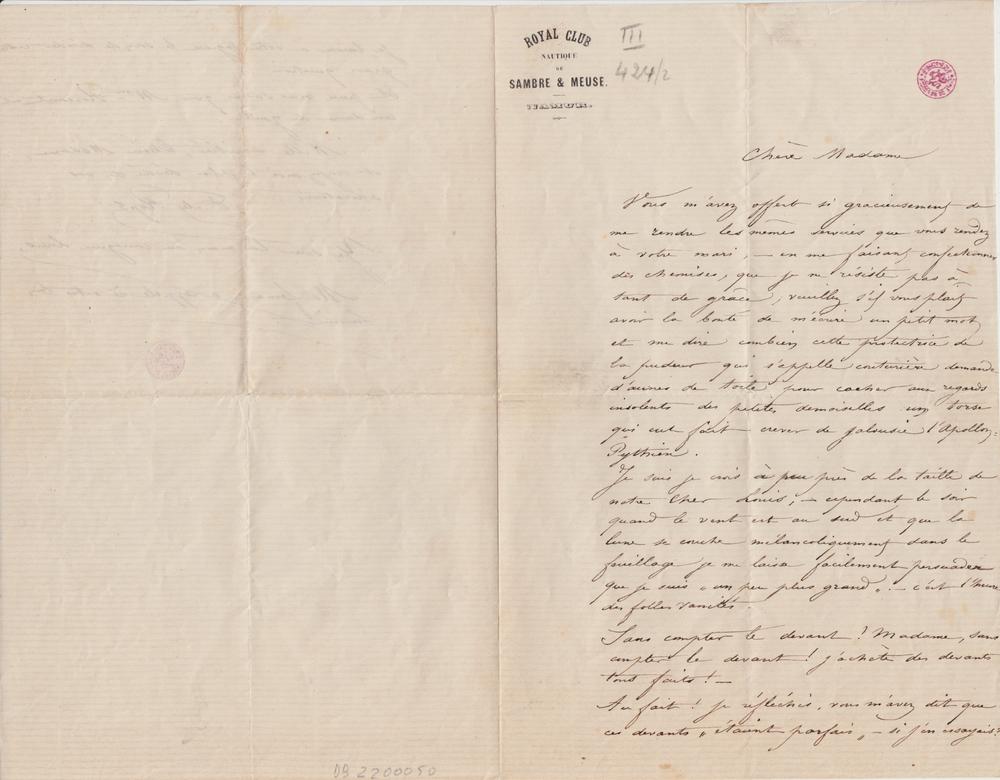 ROYAL CLUB
NAUTIQUE
DE
SAMBRE & MEUSE.
NAMUR.
III
424/2
Chère Madame
Vous m'avez offert si gracieusement de
me rendre les mêmes services que vous rendez
à votre mari, — en me faisant confectionner
des chemises, que je ne résiste pas à
tant de grâce, veuillez s'il vous plait
avoir la bonté de m'écrire un petit mot
et me dire combien cette protectrice de
la pudeur qui s'appelle couturière demande
d'aunes de toile pour cacher aux regards
insolents des petites demoiselles un torse
qui eut fait crever de jalousie l'Apollon-
Pythien.
Je suis je crois à peu près de la taille de
notre cher Louis, — cependant le soir
quand le vent est au sud et que la
lune se couche mélancoliquement dans le
feuillage je me laisse facilement persuader
que je suis „un peu plus grand„. — c'est l'heure
des folles vanités.
Sans compter le devant! Madame, sans
compter le devant! j'achète des devants
tous faits! —
Au fait! je réfléchis, vous m'avez dit que
ces devants „étaient parfais„ — si j'en essayais?
DB 2200050